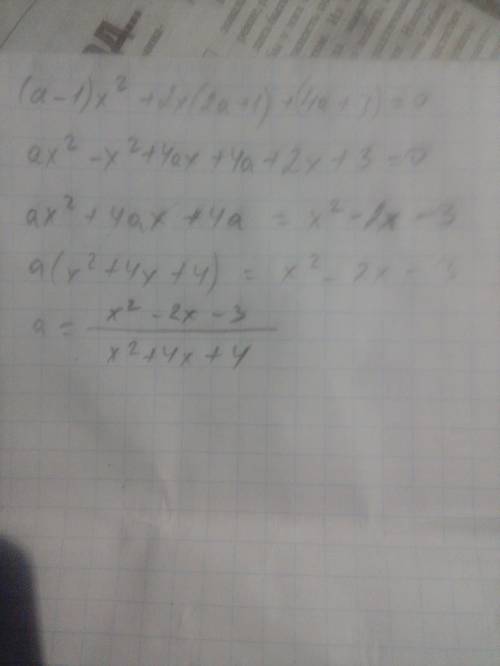 (a-1)x² + 2x(2a+1) + (4a+3) = 0
ax² - x² + 4ax + 4a + 2x + 3 = 0
ax² + 4ax + 4a = x² - 2x - 3
a(x² + 4x + 4) = x² - 2x - 3
a = \frac{x² - 2x - 3}{x² + 4x + 4}